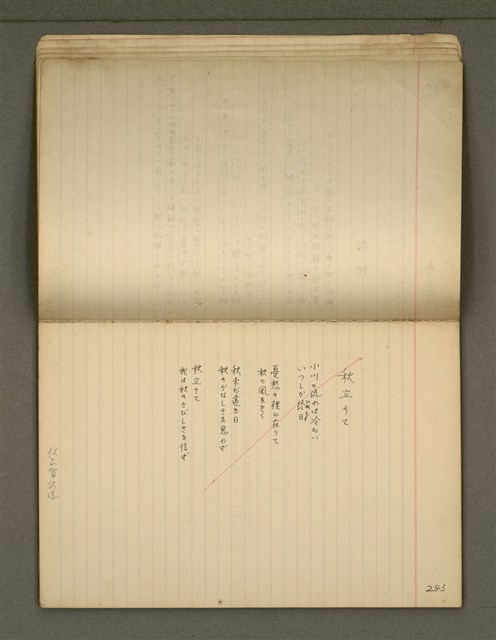 秋立ちて
小川の流れは冷たい
いつしか終日
憂愁の裡に在りて
秋の風をきく
秋まだ遠き日
秋のかなしさを思わず
秋立ちて
我は秋のさびしさを悟ず
283